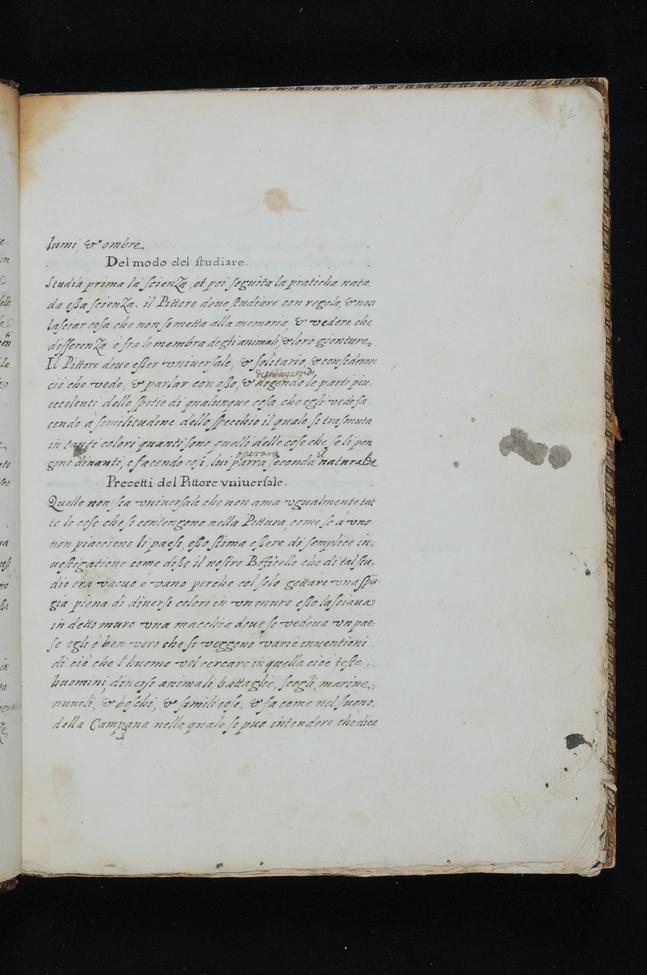 lumi, & ombre,
Del modo del studiare.
Studia prima la scienza, et poi seguita la praticha nata
da essa scienza. il Pittore deve studiare con regola, & non
lasciar cosa che non si metta alla memoria, & vedere che
differenza è fra le membra degli animali & loro gionture,
Il Pittore deve esser universale, & solitario, & considerar
ciò che vede, & parlar con esso, & elegendo le parti piu
eccelenti delle spetie di qualunque cosa che egli vede fa
cendo à similitudine dello specchio il quale si trasmuta
in tanti colori quanti sono quelli delle cose che se li pon
gono dinanti, e facendo cosi, lui parra seconda natura
operara il
Precetti del Pittore universale.
Quello non sia universale che non ama ugualmente tut
te le cose che si contengono nella Pittura, come se à uno
non piacciono li paesi, esso stima essere di semplice in
vestigatione come disse il nostro Botticello che di tal stu
dio era vacuo e vano perche col solo gettare una spu
gia piena di diversi colori in un muro esso lasciava
in detto muro una macchia dove si vedeva un pae
se egli è ben vero che si veggono varie inventioni
di ciò che l'huomo vol cercare in quella cioè teste,
huomini, diversi animali, battaglie, scogli, marine,
nuvoli, & boschi, & simili cose, & fa come nel suono
della Campana nella quale se può intendere che dica